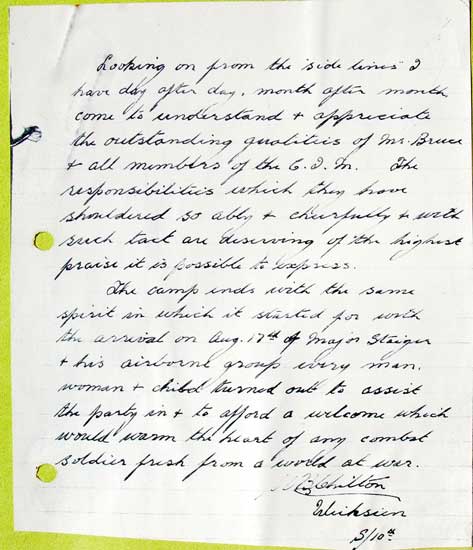 Looking on from the side lines I
have day after day, month after month
come to understand + appreciate
the outstanding qualities of Mr. Bruce
+ all members of the C.I.M. The
responsibilities which they have
shouldered so ably + cheerfully + with
such tact are deserving of the highest
praise it is possible to express.
The camp ends with the same
spirit in which it started for with
the arrival on Aug. 17th of Major Staiger
+ his airborne group every man,
woman + child turned out to assist
the party in + to afford a welcome which
would warm the heart of any combat
soldier fresh from a world at war.
Chilton
Weihsien
S/10th